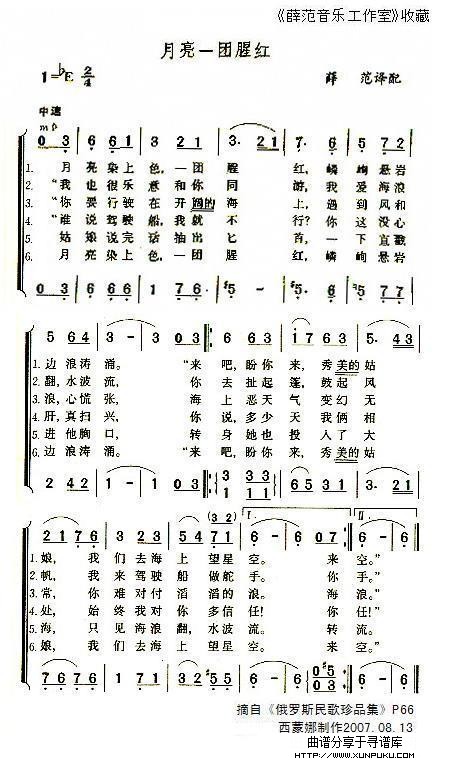 《薛范音乐工作室》收藏
月亮一团腥红
1=♭E 2/4
薛 范译配
中速
mp
0 3 6 6 6 1 3 2 1 3· 2 1 7· 6 #5 4 2
1. 月 亮染上 色，一团 腥 红，嶙峋悬岩
2. “我 也很乐 意和你 同 游，我 爱海浪
3. “你 要行驶 在开阔的 海 上，遇到风和
4. “谁 说驾驶 船，我就 不 行？你 这没心
5. 姑 娘说完 话抽出 匕 首，一下直戳
6. 月 亮染上 色，一团 腥 红，嶙峋悬岩
5 6 4 3 — 3 0 3 6 · 6 1 7 6 3 5· 4 3
1. 边浪涛 涌。 “来 吧，盼你 来，秀美的姑
2. 翻，水波 流， 你 去扯起 篷，鼓起风
3. 浪，心慌 张， 海 上恶天 气变幻无
4. 肝，真扫 兴， 你 说，多少 天我俩相
5. 进他胸 口， 转 身她也 投入了大
6. 边浪涛 涌。 “来 吧，盼你 来，秀美的姑
2 4 2 1 — 1 0 3
2 1 7 6 3 2 3 2 1 7 6 6 — 6 0 3 6 0
1. 娘， 我 们去海 上望星 空。 来 空。”
2. 帆， 我 来驾驶 船做舵 手。 你 手。”
3. 常， 你 难对付 滔滔的 浪。 海 浪。”
4. 处， 始 终我对 你多信 任！ 你 任！”
5. 海， 只 见海浪 翻，水波 流。 转 流。
6. 娘， 我 们去海 上望星 空。” 来 空。”
摘自《俄罗斯民歌珍品集》P66
西蒙娜制作2007.08.13
曲谱分享于寻谱库
WWW.XUNPUKU.COM